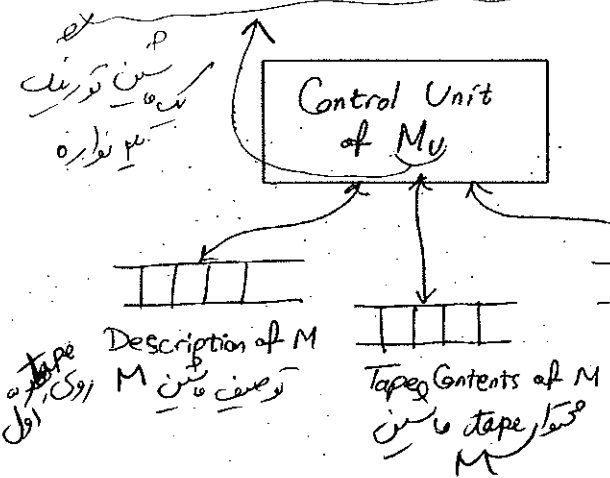 ماشین تورینگ
یک ماشین
۳ نواره
Control Unit
of Mu
Description of M
توصیف ماشین M
روی tape
اول
Tape Contents of M
محتوا tape ماشین
M